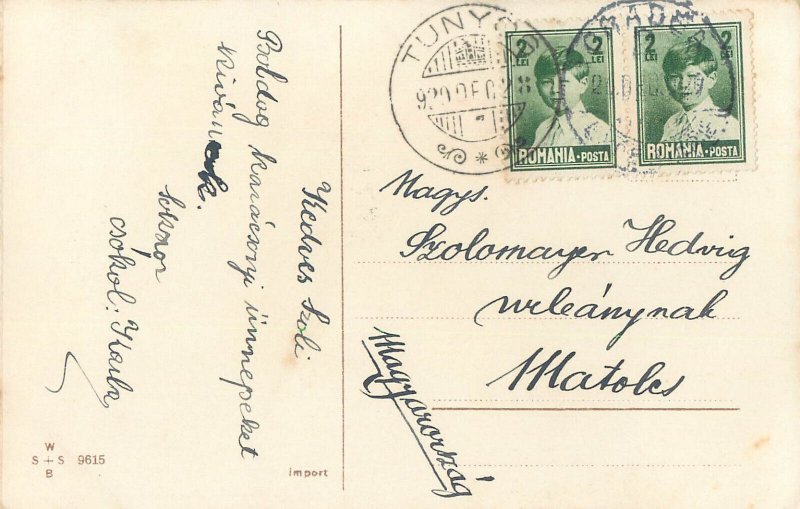 Kedves Szoli
Boldog karácsonyi ünnepeket
kivánok.
csokol: Karla
W
S + S 9615
B
import
TUNYOG
929 DEC
2 LEI 2 LEI
ROMANIA•POSTA
2 LEI
ROMANIA•POSTA
Nagys.
Szolomayer Hedvig
urleánynak
Matolcs
Magyarország